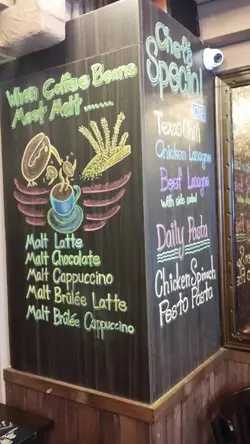 When Coffee Beans
Meet Malt......
Malt Latte
Malt Chocolate
Malt Cappuccino
Malt Brûlée Latte
Malt Brûlée Cappuccino
Chef's
Special
Texas Chili
Chicken Lasagne
Beef Lasagne
with side salad
Daily Pasta
Chicken Spinach
Pesto Pasta